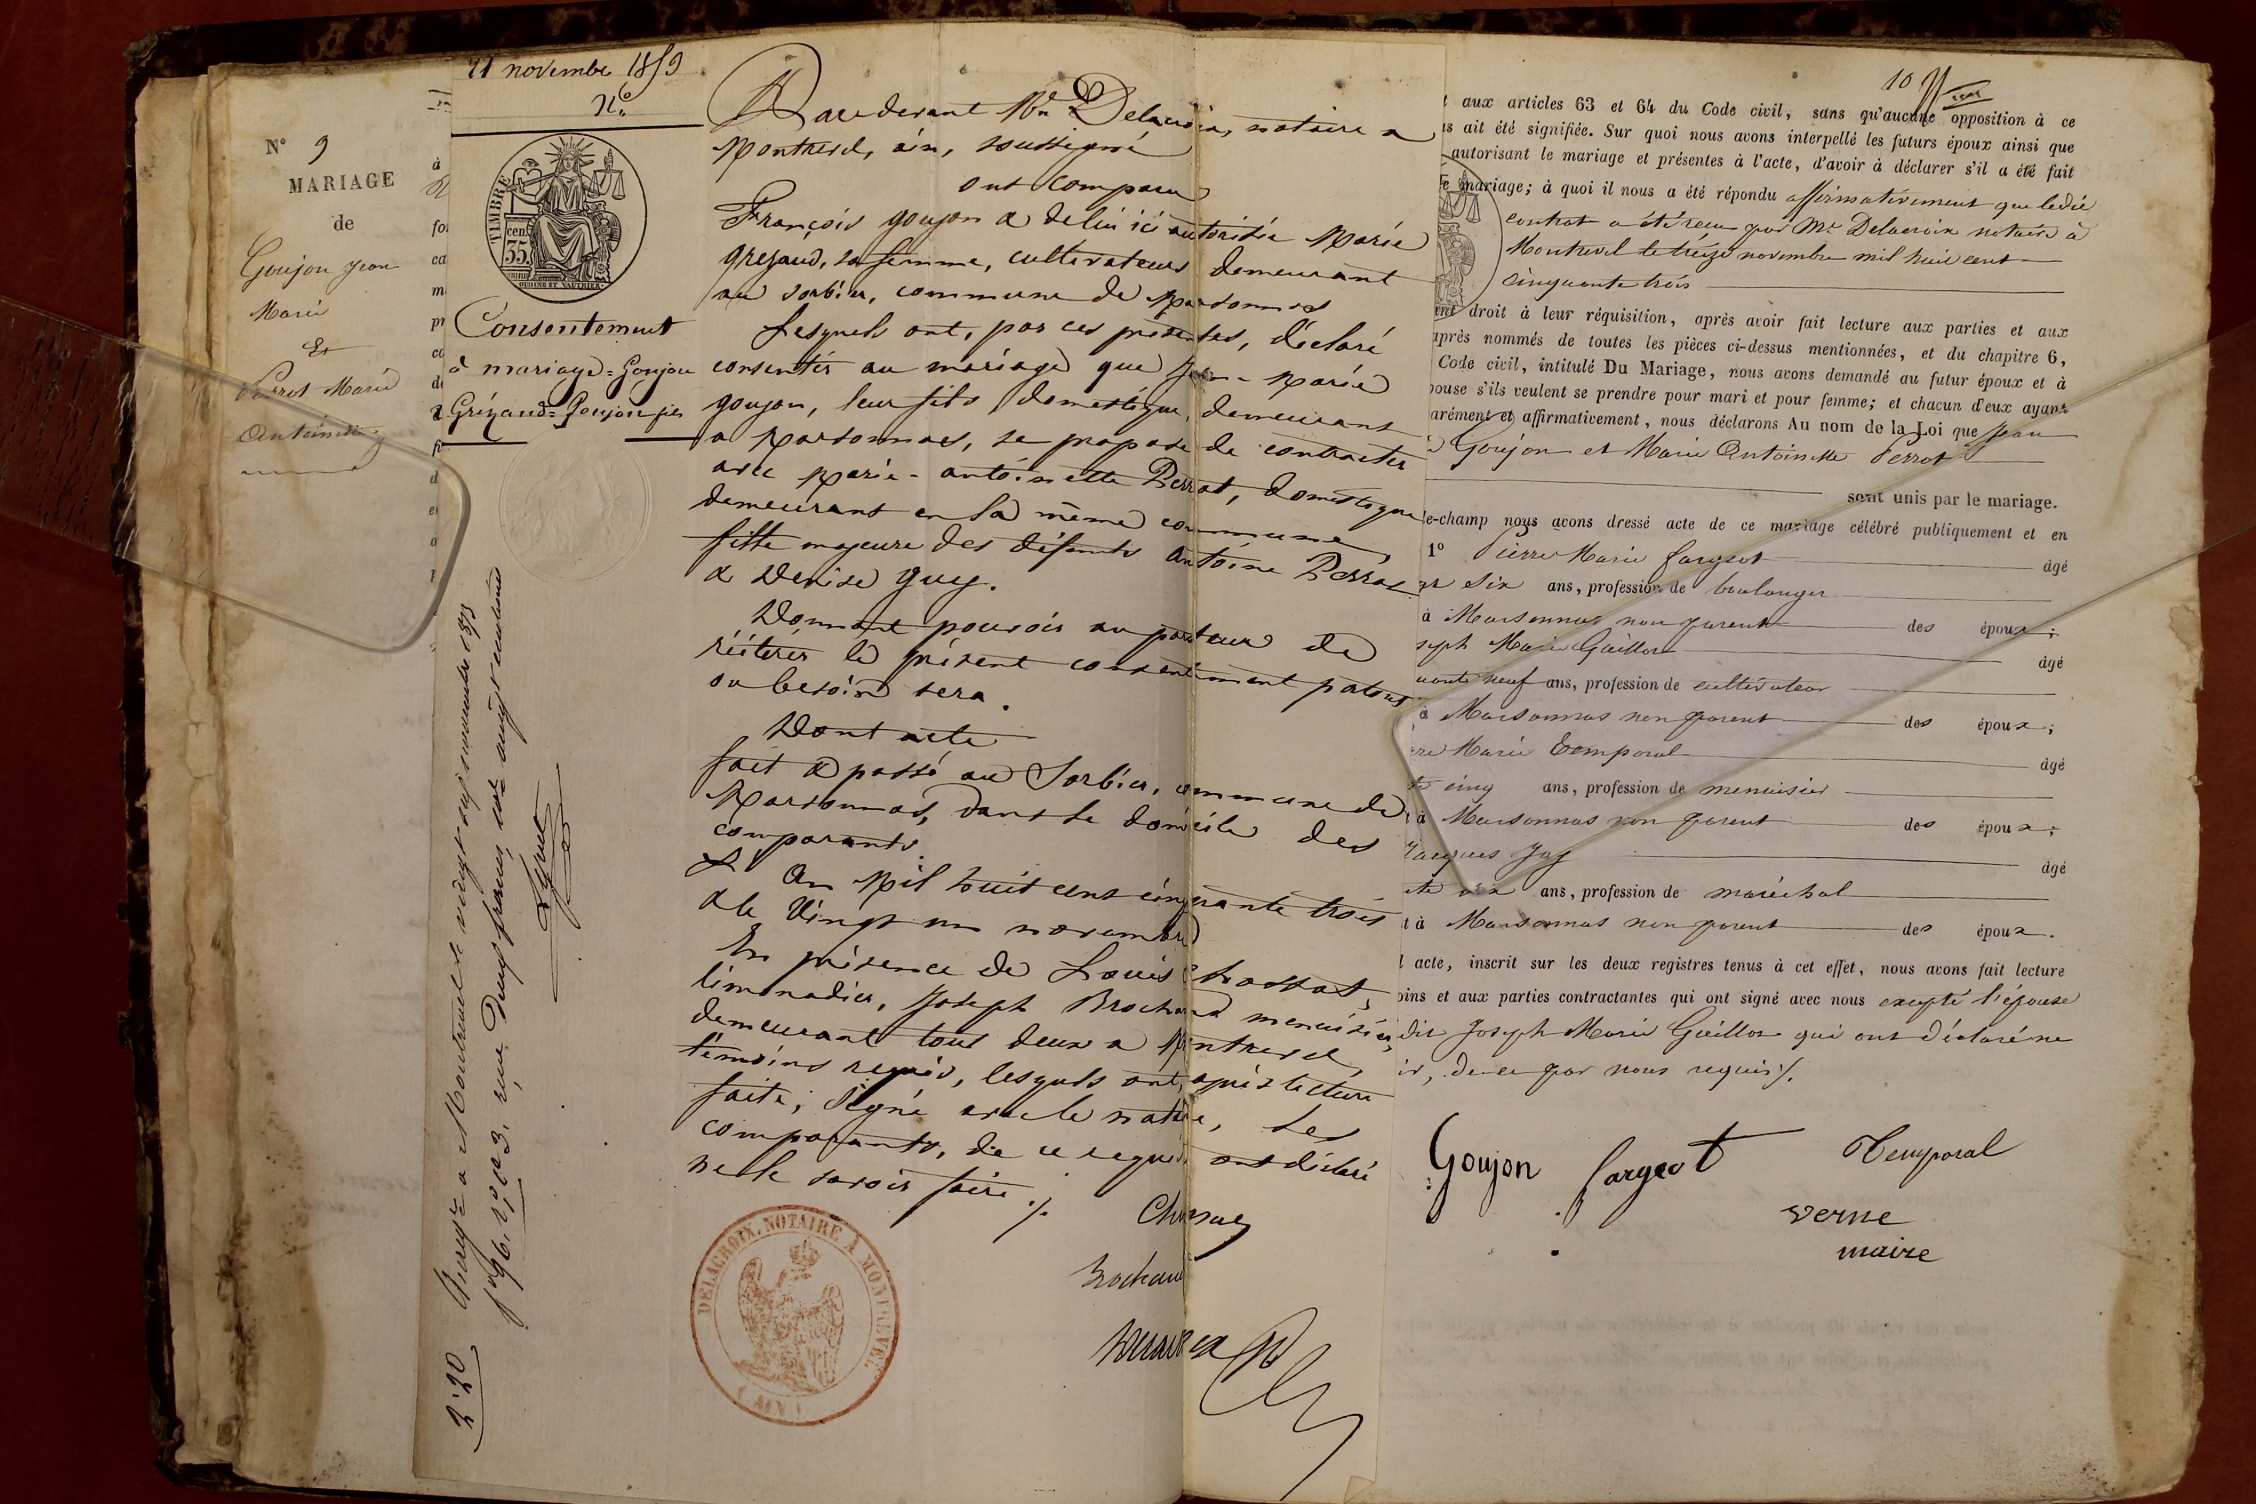 N° 9
MARIAGE
de
Goujon Jean
Marie
Et
Perrot Marie
Antoinette
21 novembre 1853
N°
TIMBRE
35 cen.
Consentement
à mariage = Goujon
Grézaud = Goujon fils
2.20
Pardevant Me Delacroix, notaire a
Montrevel, ain, soussigné
ont comparu
François goujon & de lui ici autorisée Marie
grezaud, sa femme, cultivateurs demeurant
au sorbier, commune de Marsonnas
Lesquels ont, par ces présentes, déclaré
consentir au mariage que Jean-Marie
goujon, leur fils, domestique, demeurant
a Marsonnas, se propose de contracter
avec Marie-antoinette Perrot, domestique
demeurant en la même commune,
fille majeure des défunts antoine Perrot
& Denise guy.
Donnant pouvoir au porteur de
réitérer le présent consentement partout
ou besoin sera.
Dont acte
fait & passé au Sorbier, commune de
Marsonnas, dans le domicile des
comparants.
L'An Mil huit cent cinquante trois
& le Vingt un novembre
En présence de Louis
limonadier, Joseph Brochand menuisier,
demeurant tous deux a Montrevel,
témoins requis, lesquels ont, après lecture
faite, signé avec le notaire, les
comparants, de ce requis ont déclaré
ne le savoir faire ./.
DELACROIX, NOTAIRE À MONTREVEL
(AIN)
10
aux articles 63 et 64 du Code civil, sans qu'aucune opposition à ce
s ait été signifiée. Sur quoi nous avons interpellé les futurs époux ainsi que
autorisant le mariage et présentes à l'acte, d'avoir à déclarer s'il a été fait
e mariage; à quoi il nous a été répondu affirmativement que ledit
contrat a été reçu par Me Delacroix notaire à
Montrevel le treize novembre mil huit cent
cinquante trois
ant droit à leur réquisition, après avoir fait lecture aux parties et aux
après nommés de toutes les pièces ci-dessus mentionnées, et du chapitre 6,
Code civil, intitulé Du Mariage, nous avons demandé au futur époux et à
pouse s'ils veulent se prendre pour mari et pour femme; et chacun d'eux ayant
arément et affirmativement, nous déclarons Au nom de la Loi que Jean
Goujon et Marie Antoinette Perrot
sont unis par le mariage.
le-champ nous avons dressé acte de ce mariage célébré publiquement et en
1° Pierre Marie Fargeot âgé
six ans, profession de boulanger
à Marsonnas non parent des époux;
seph Marie Guillon âgé
uante neuf ans, profession de cultivateur
à Marsonnas non parent des époux;
rre Marie Temporal âgé
te cinq ans, profession de menuisier
à Marsonnas non parent des époux;
Jacques âgé
ans, profession de maréchal
t à Marsonnas non parent des époux.
l acte, inscrit sur les deux registres tenus à cet effet, nous avons fait lecture
oins et aux parties contractantes qui ont signé avec nous excepté l'épouse
dit Joseph Marie Guillon qui ont déclaré ne
ir, de ce par nous requis ./.
Goujon Fargeot Temporal
verne
maire